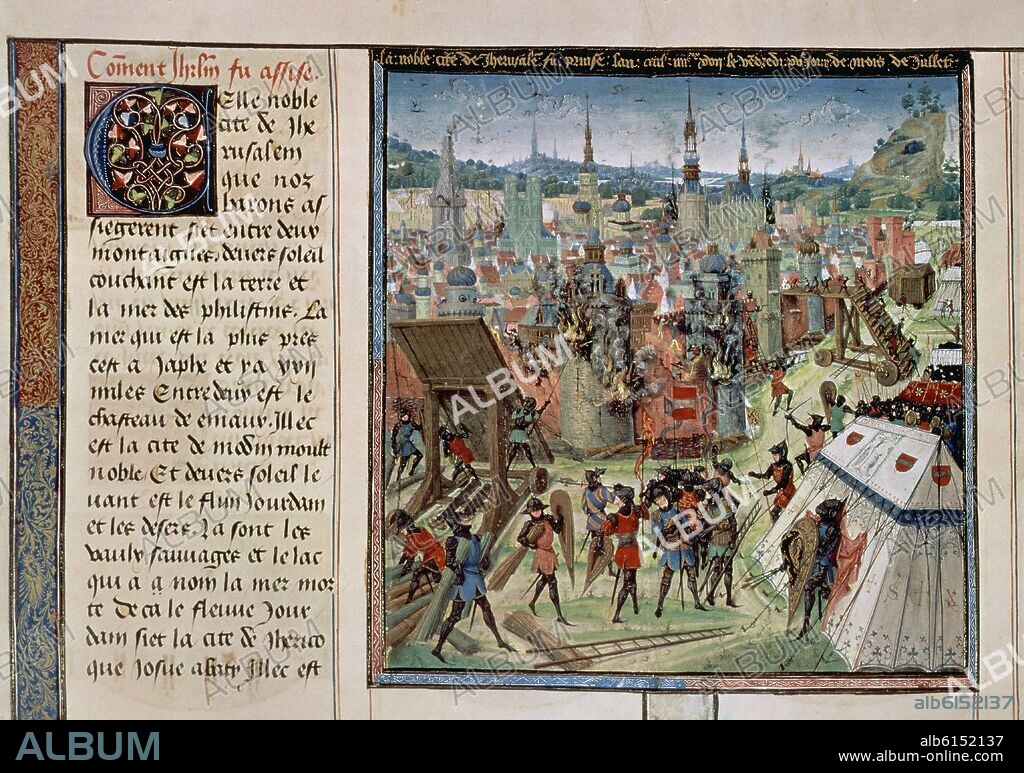 Co͞ment Jhrl͞m fu assise.
CElle noble
cite de Jhe
rusalem
que noz
barons as
siegerent siet entre deux
montaignes. devers soleil
couchant est la terre et
la mer des philistins. La
mer qui est la plus pres
cest a Japhe et y a xvii
miles Entre deux est le
chasteau de emaux. Illec
est la cite de modin moult
noble. Et devers soleil le
vant est le flun Jourdain
et les desers. La sont les
vaulx sauvages et le lac
qui a a nom la mer mor
te deca le fleuve Jour
dain siet la cite de Jherico
que Josue abaty Illec est
la noble cite de Jherusale͞ fu prinse lan le vendredi jour de mois de Jullet
ALBUM
alb6152137
ALBUM
alb6152137
www.album-online.com